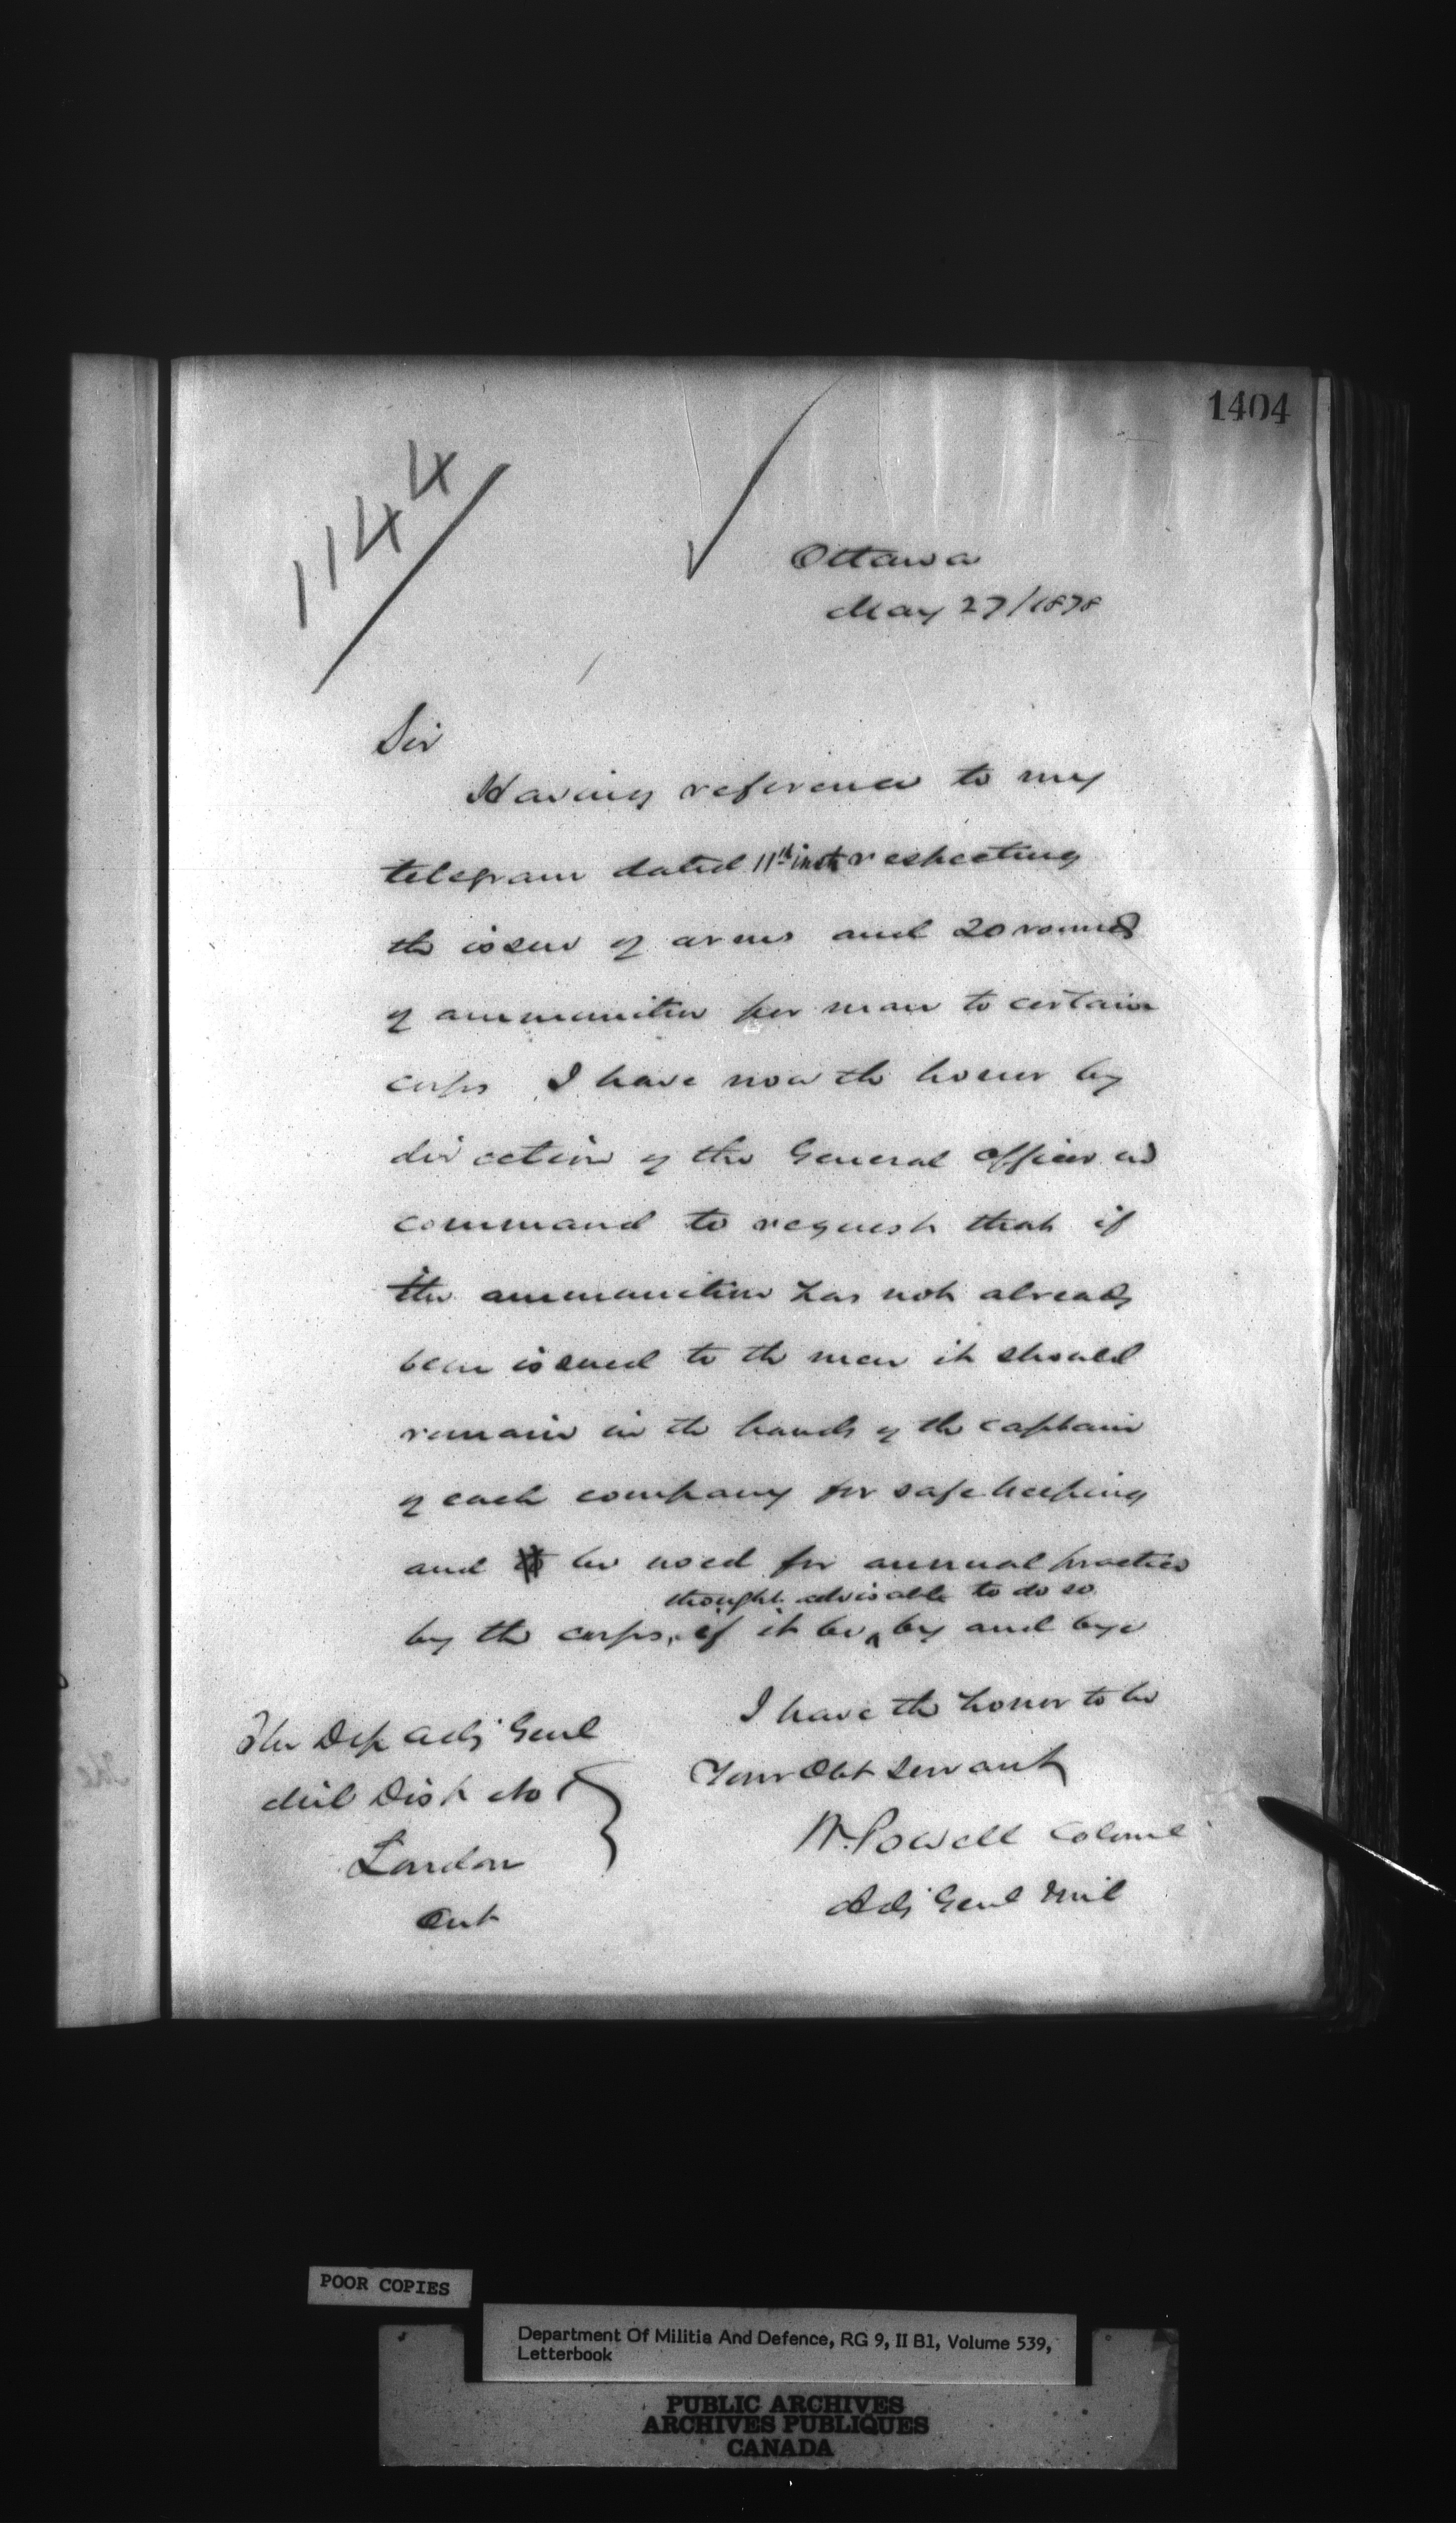 1404
1144
Ottawa
May 27/1878
Sir
Having reference to my
telegram dated 11th inst respecting
the issue of arms and 20 rounds
of ammunition per man to certain
corps I have now the honor by
direction of the General Officer in
command to request that if
the ammunition has not already
been issued to the men it should
remain in the hands of the captain
of each company for safe keeping
and to be used for annual practice
thought advisable to do so
by the corps, if it be by and bye
I have the honor to be
Your Obt servant
W. Powell Colonel
Adj Genl Mil
The Dep Adj Genl
Mil Dist No 1
London
Ont
POOR COPIES
Department Of Militia And Defence, RG 9, II B1, Volume 539,
Letterbook
PUBLIC ARCHIVES
ARCHIVES PUBLIQUES
CANADA